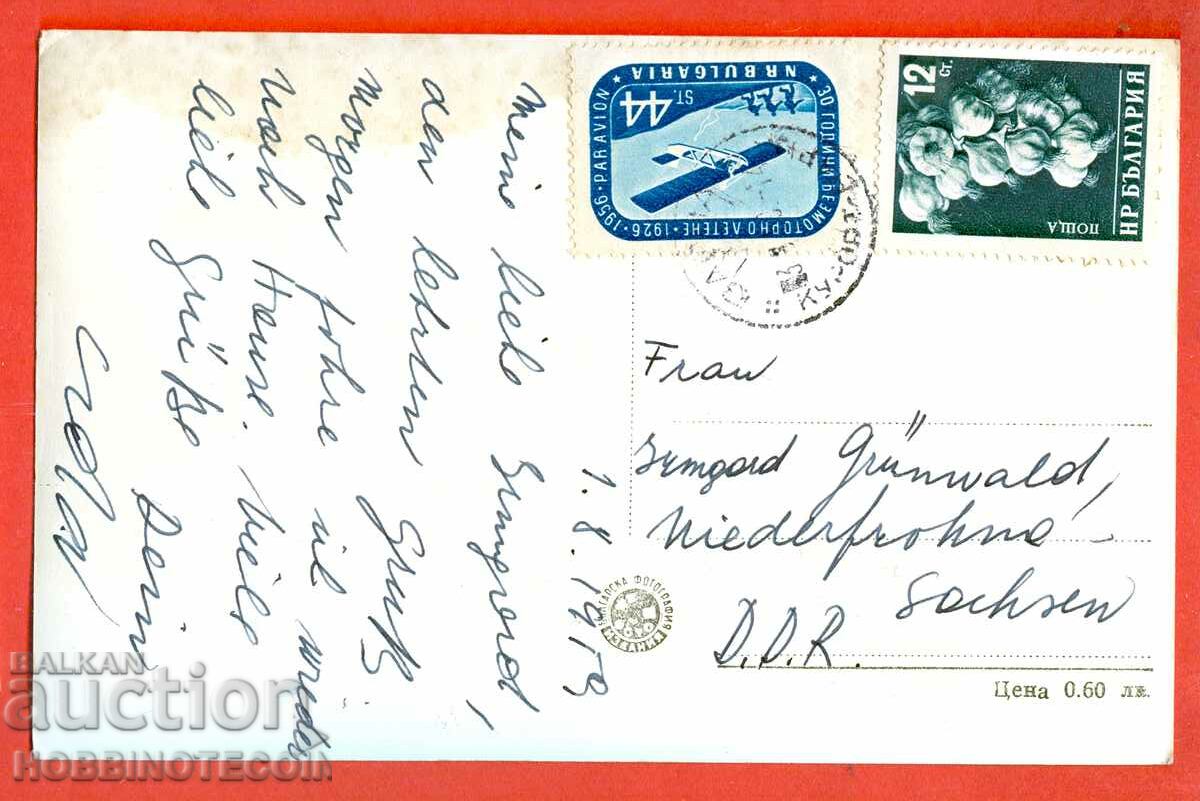 1.8.1959
Meine liebe Irmgard!
den letzten Gruß.
Morgen fahre ich wieder
nach Hause. Viele
liebe Grüße
Deine
44 ST.
N.R.BULGARIA
30 ГОДИНИ БЕЗМОТОРНО ЛЕТЕНЕ · 1926 · 1956 · PAR AVION
12 СТ.
НР БЪЛГАРИЯ
ПОЩА
Frau
Irmgard Grünwald,
Niederfrohna
Sachsen
D.D.R.
БЪЛГАРСКА ФОТОГРАФИЯ
Цена 0.60 лв.
BALKAN
auction
HOBBINOTECOIN